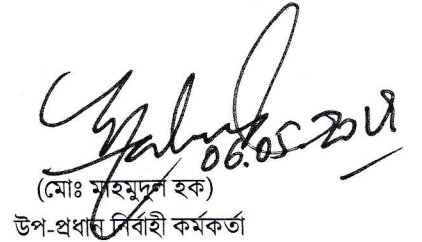 06.05.2019
(মোঃ মাহমুদুল হক)
উপ-প্রধান নির্বাহী কর্মকর্তা